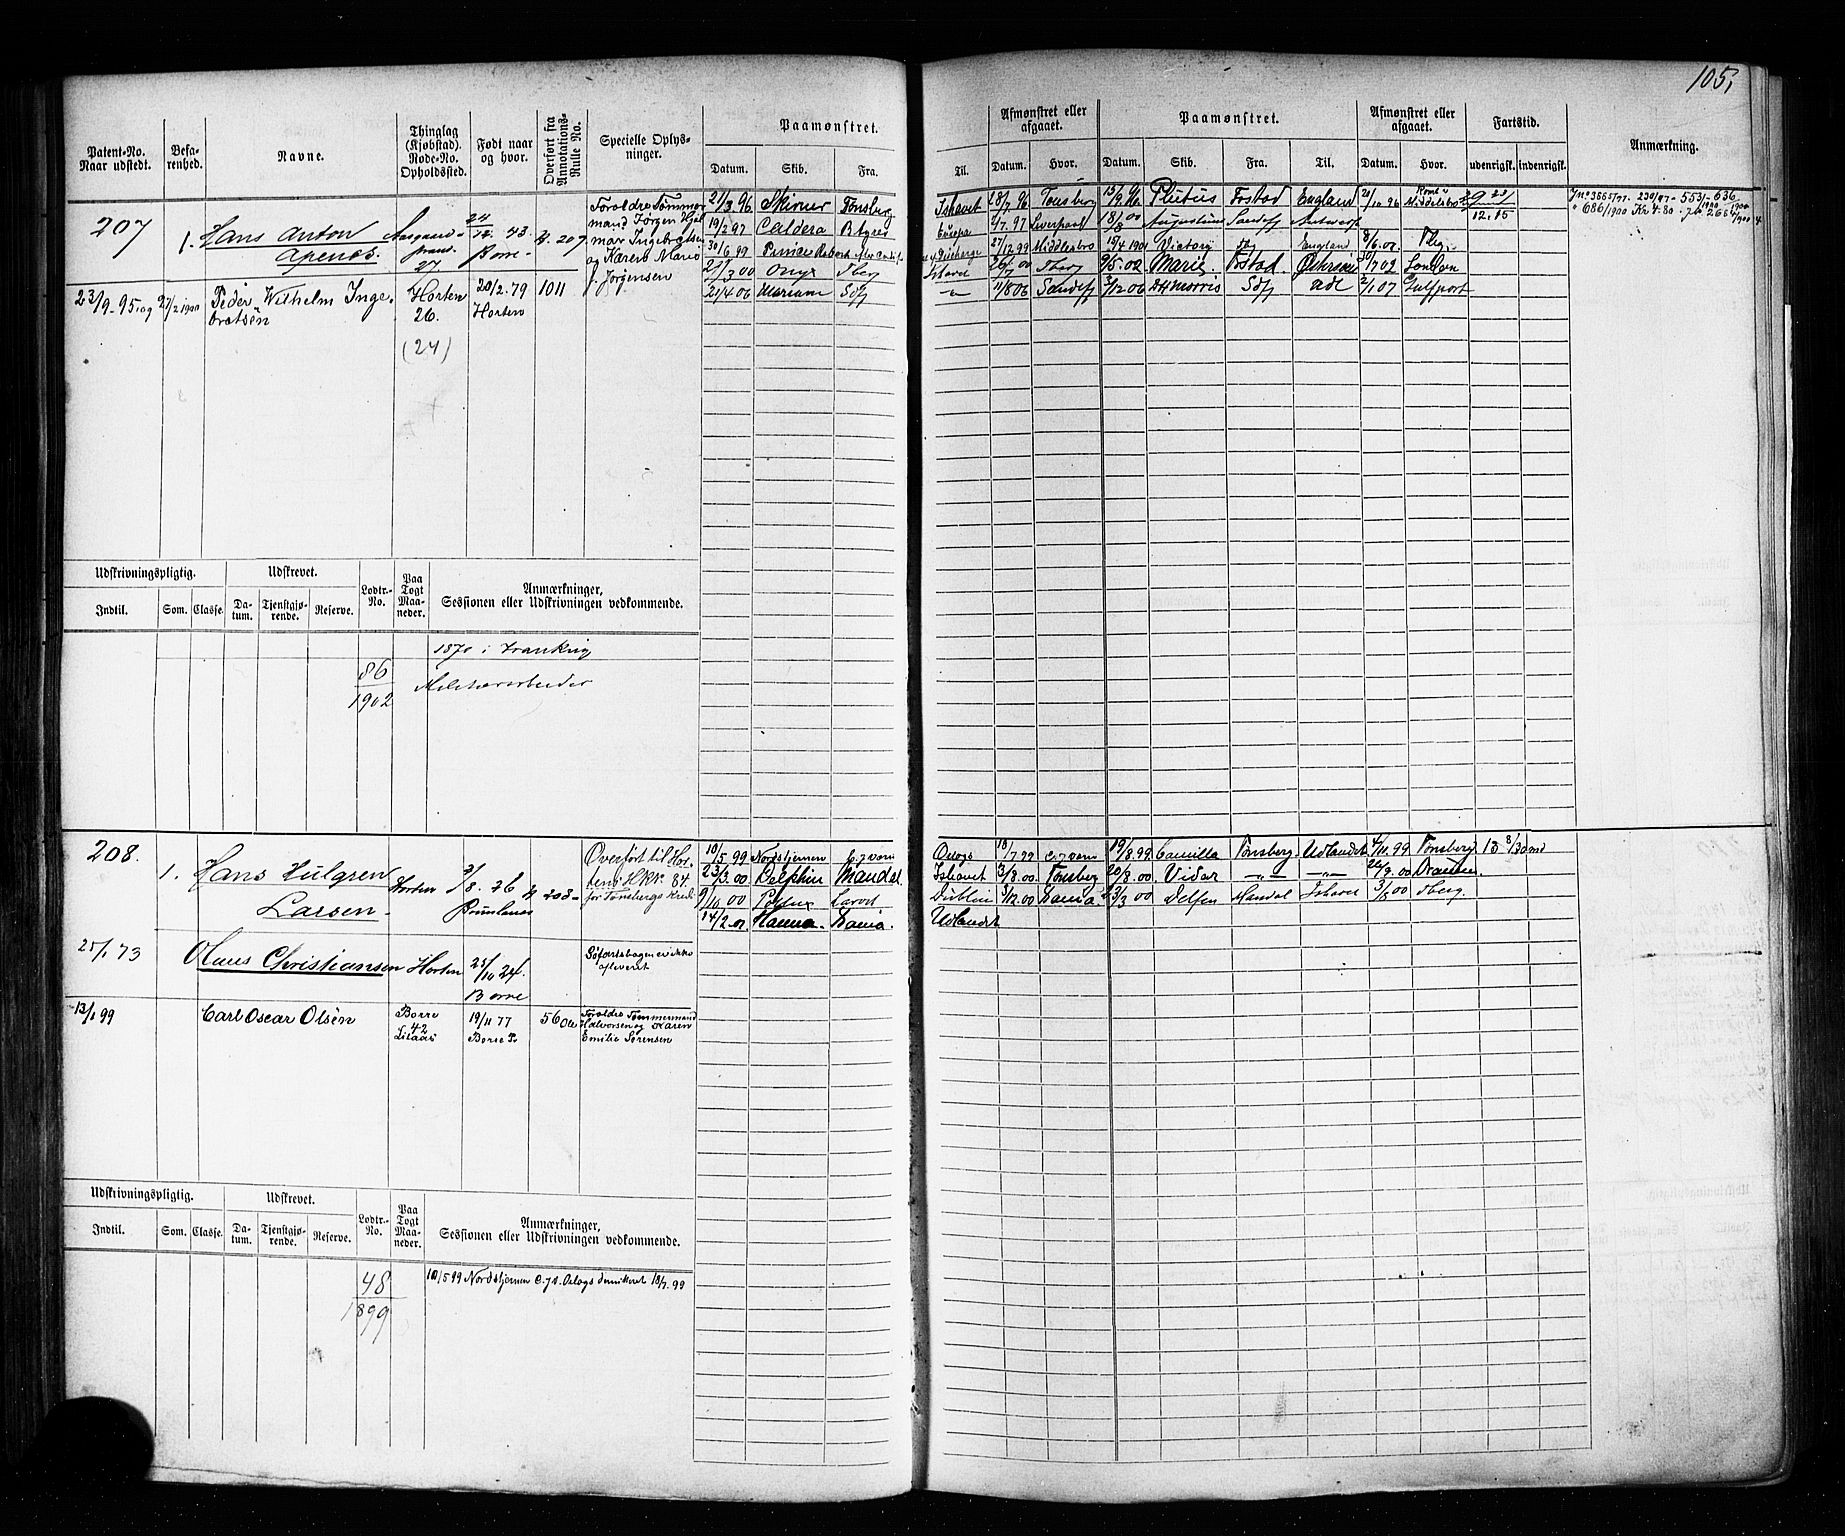 105,
Patent-No. Naar udstedt.
Befarenhed.
Navne.
Thinglag (Kjøbstad). Rode-No. Opholdssted.
Født naar og hvor.
Overført fra Annotations-Rulle No.
Specielle Oplysninger.
Paamønstret.
Datum. Skib. Fra.
Til.
Afmønstret eller afgaaet.
Datum. Hvor.
Paamønstret.
Datum. Skib. Fra. Til.
Afmønstret eller afgaaet.
Datum. Hvor.
Fartstid.
udenrigsk. indenrigsk.
Anmærkning.
207
1. Hans Anton
Apenes.
27
24/12 43.
Borre
207
Forældre Tømmer
mand Jørgen Hjel
mar Ingebretsen
og Karen Marie
f. Jørgensen
23/9-95 og 27/2 1900
Peder Wilhelm Inge-
bretsen
Horten
26.
(24)
20/2.79
Horten
1011
21/3 96 Skirner Tønsberg Ishavet 28/7 96 Tønsberg 15/9 96 Plutus Fostad England 20/10 96 Middelsbro
19/2 97 Caldera Europa 4/7.97 Liverpool 18/8 00 Augustinus Sandefj Antwerp 12.15
30/6 99 27/12 99 Middlesbro 19/4 1901 Victoria Tbg England 8/6.01 Tbg.
27/3 00 Onyx Tberg Ishavet Tberg 9/5.02 Marie Fostad. London
21/4 06 Mariane Sdfj - " - 11/8 06 Sandefj 3/12 06 Morris Sdfj Adl 2/1 07 Gulfport
Udskrivningspligtig.
Indtil. Som. Classe.
Udskrevet.
Datum. Tjenstgjørende. Reserve.
Lodtr.-No.
Paa Togt Maaneder.
Anmærkninger,
Sessionen eller Udskrivningen vedkommende.
1870 i Frankrig
86
1902
208.
1. Hans Hulgren
Larsen
Horten
7/8. 76
Brunlanes
208
Overført til Hor-
tens HRR. 84.
for Tønsbergs Kred.
10/5 99 Nordstjernen Orlogs 18/7 99 19/8.99 Camilla Tønsberg. Udlandet 4/10.99 Tønsberg 13
23/3 00 Delphin Mandal. Ishavet 3/8.00. Tønsberg 20/8.00. Vidar - " - - " - 24/9.00 Drammen
9/10 00 Pollux Larvik Dublin 3/12.00 Dania 23/3 00 Delfin Mandal Ishavet Tberg.
14/2.01 Hanna. Dania. Udlandet
25/1 73
Olaus Christiansen
Horten
25/10 24.
Borre
Søfartsbogen ei ikke
afleveret
13/1 99
Carl Oscar Olsen
Borre
42
19/11 77
Borre P.
56
Forældre Tømmermand
Halvorsen og Karen
Emilie Sørensen
Udskrivningspligtig.
Indtil. Som. Classe.
Udskrevet.
Datum. Tjenstgjørende. Reserve.
Lodtr.-No.
Paa Togt Maaneder.
Anmærkninger,
Sessionen eller Udskrivningen vedkommende.
48
1899
10/5 99 Nordstjernen Orlogs 18/7.99